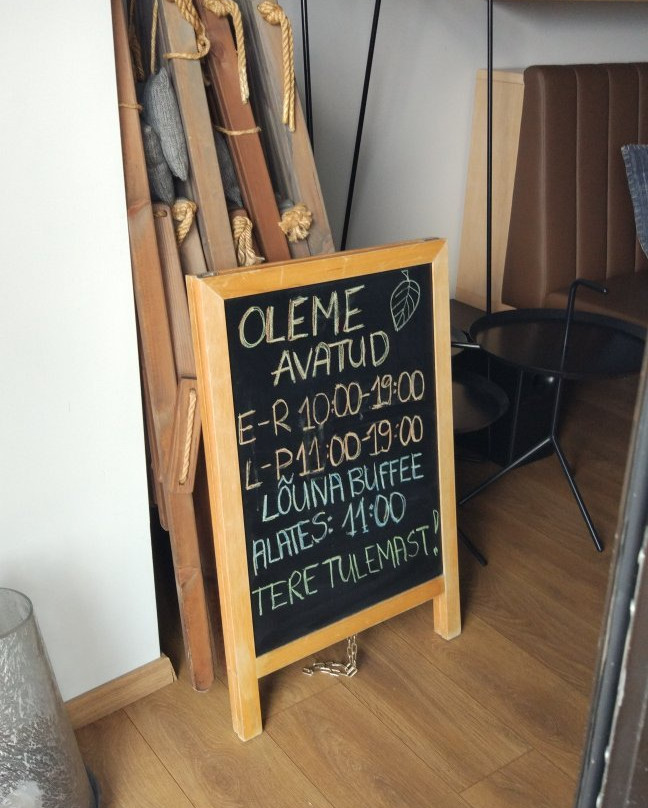 OLEME
AVATUD
E-R 10:00-19:00
L-P 11:00-19:00
LÕUNA BUFFEE
ALATES: 11:00
TERE TULEMAST!